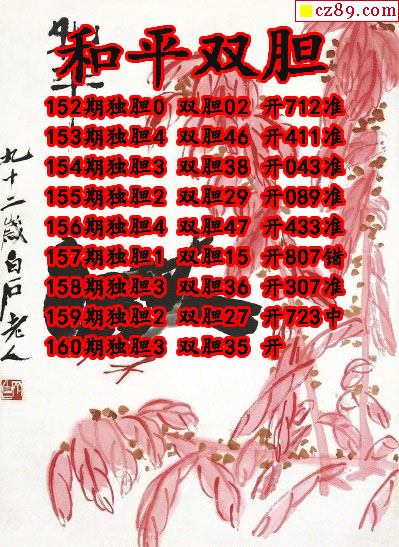 cz89.com
和平双胆
152期独胆0 双胆02 开712准
153期独胆4 双胆46 开411准
154期独胆3 双胆38 开043准
155期独胆2 双胆29 开089准
156期独胆4 双胆47 开433准
157期独胆1 双胆15 开807错
158期独胆3 双胆36 开307准
159期独胆2 双胆27 开723中
160期独胆3 双胆35 开
九十二岁白石老人